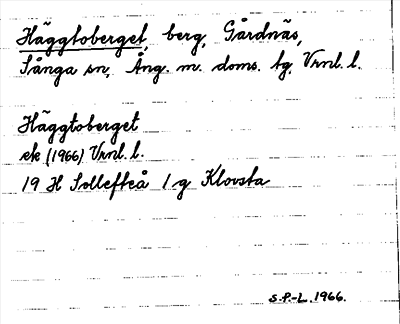 Häggtoberget, berg, Gårdnäs,
Sånga sn, Ång. m. doms. tg, Vrnl. l.
Häggtoberget
ek (1966) Vrnl. l.
19 H Sollefteå 1 g Klovsta
S.P-L. 1966.